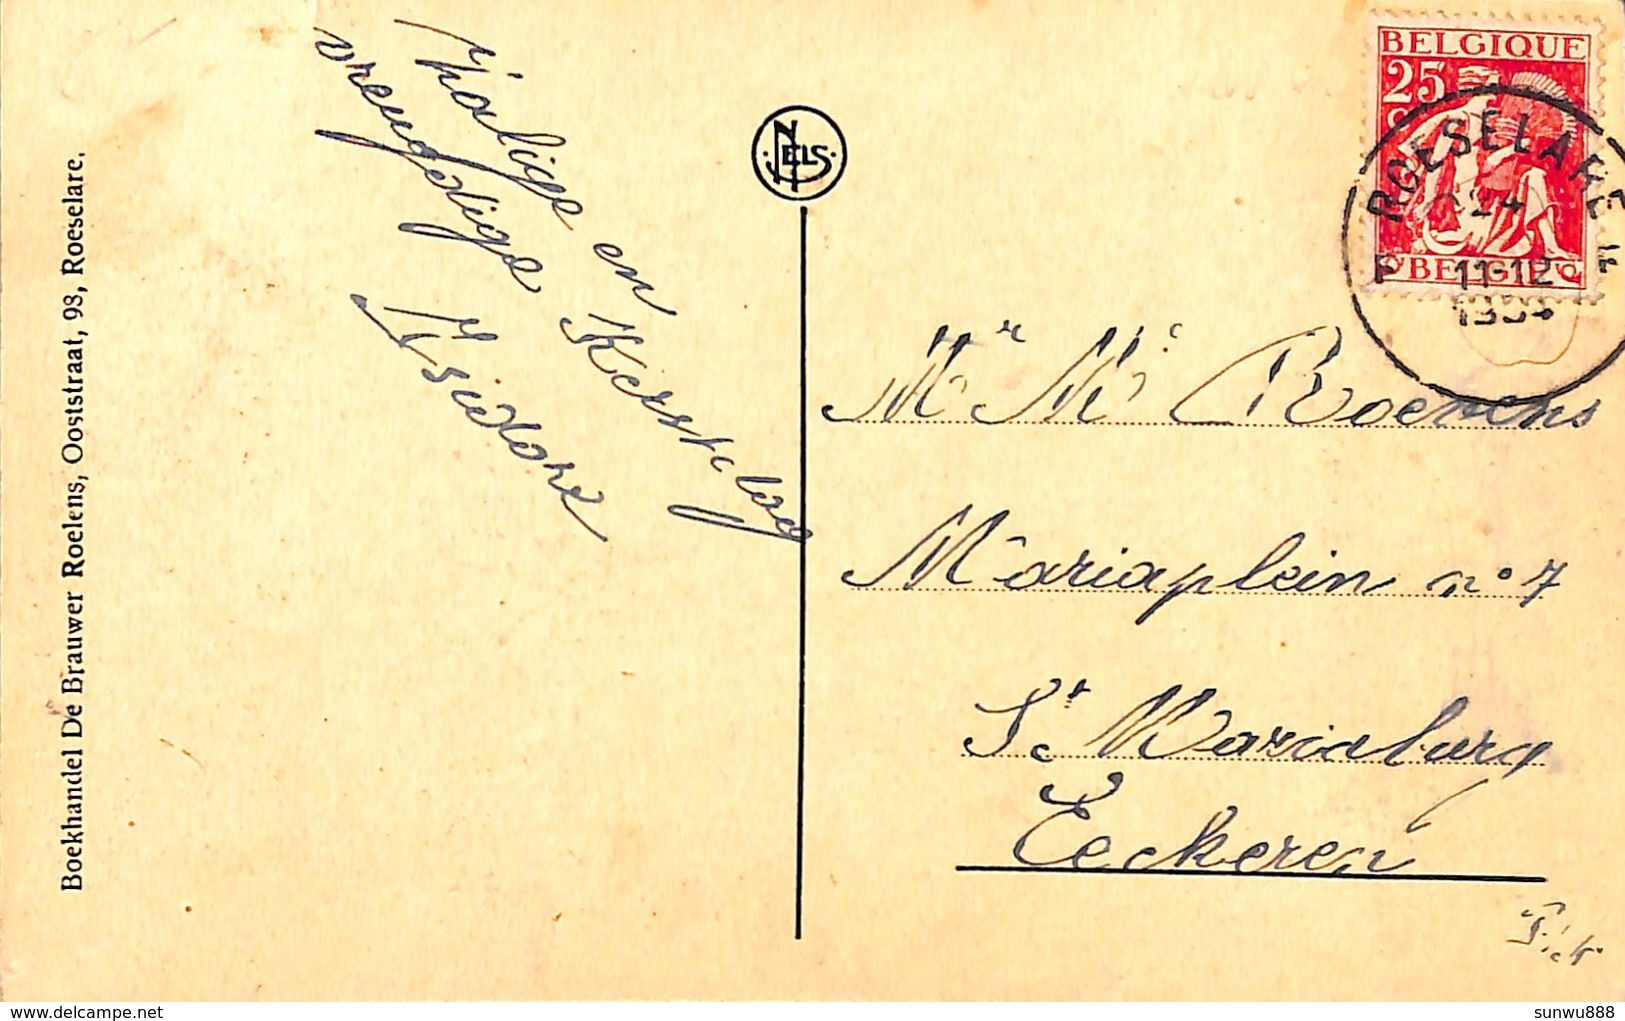 Zalige en Kerstdag
vreugdige
Isidore
Boekhandel De Brauwer Roelens, Ooststraat, 93, Roeselare.
NELS
BELGIQUE
25
ROESELARE
24
11-12
1934
BELGIË
Mr M
Mariaplein n° 7
St Mariaburg
Eeckeren
www.delcampe.net
sunwu888